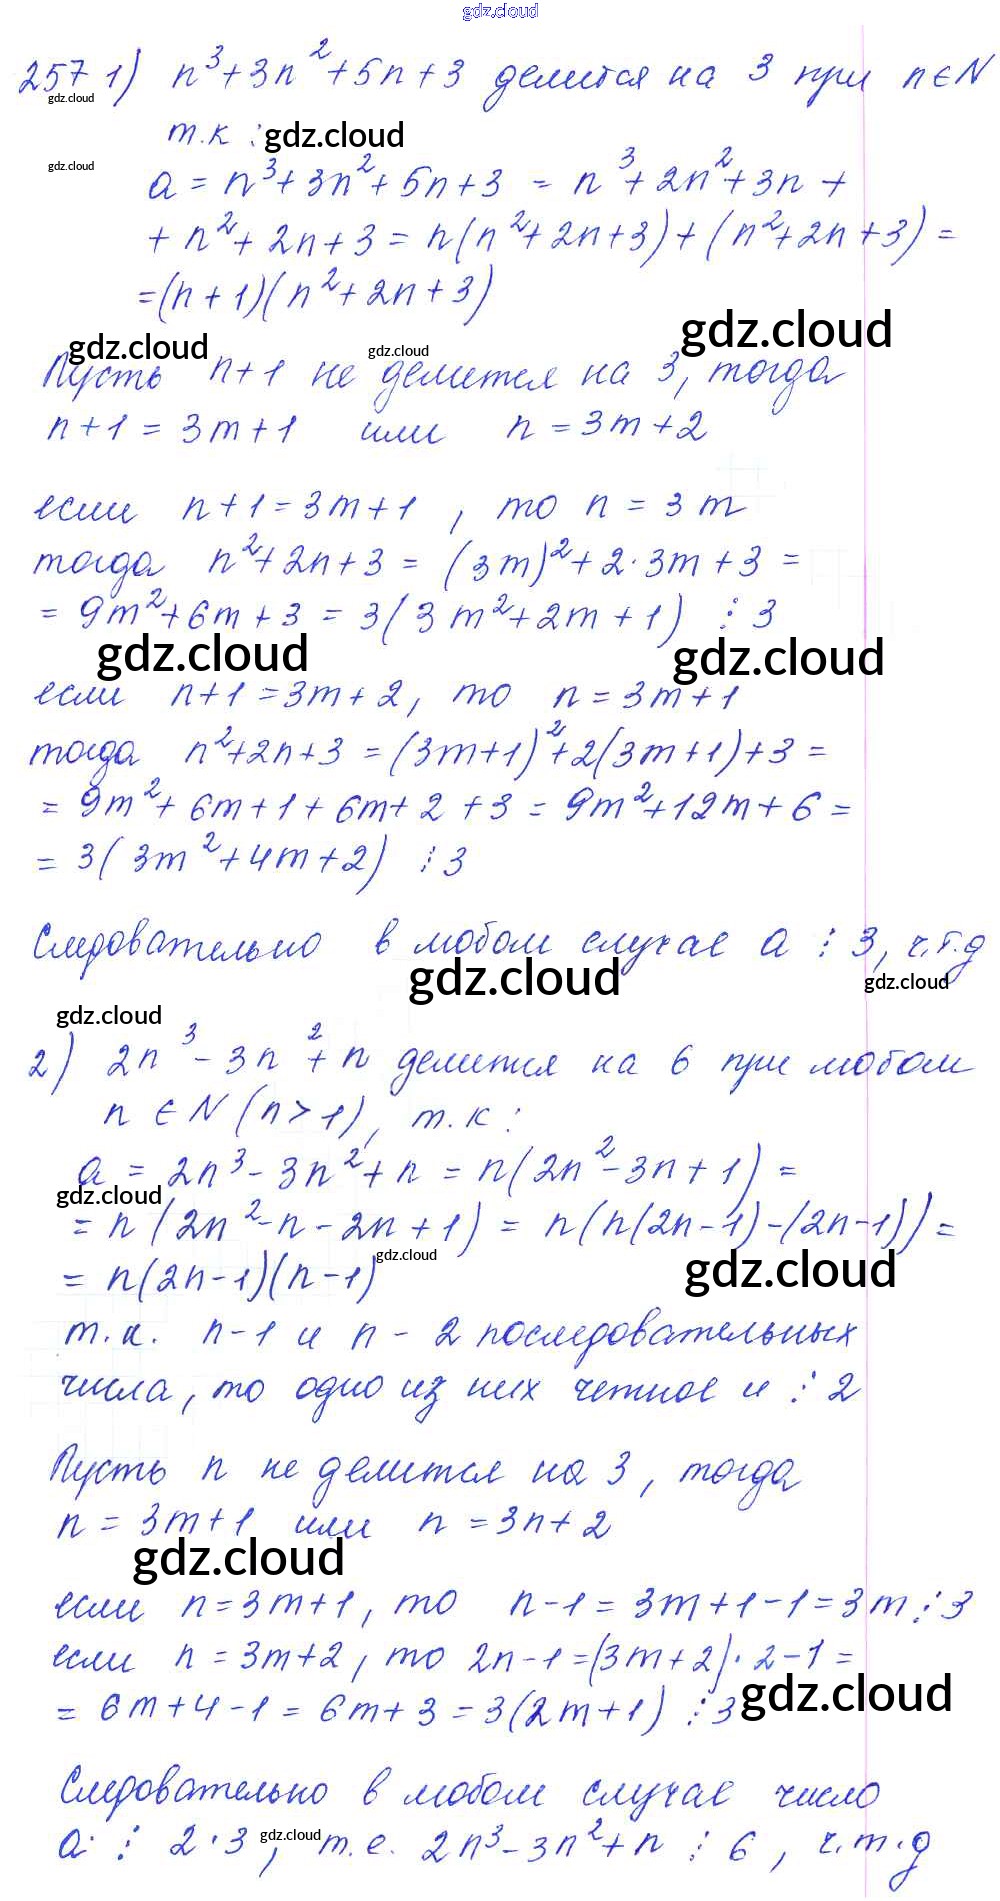 gdz.cloud
257 1) n³+3n²+5n+3 делится на 3 при n∈N
gdz.cloud
т.к :
gdz.cloud
gdz.cloud
a = n³+3n²+5n+3 = n³+2n²+3n+
+ n²+2n+3 = n(n²+2n+3)+(n²+2n+3) =
=(n+1)(n²+2n+3)
gdz.cloud
gdz.cloud
gdz.cloud
Пусть n+1 не делится на 3, тогда
n+1 = 3m+1 или n = 3m+2
если n+1=3m+1, то n = 3m
тогда n²+2n+3 = (3m)²+2·3m+3 =
= 9m²+6m+3 = 3(3m²+2m+1) ⋮ 3
gdz.cloud
gdz.cloud
если n+1=3m+2, то n=3m+1
тогда n²+2n+3 =(3m+1)²+2(3m+1)+3 =
= 9m²+6m+1+6m+2+3= 9m²+12m+6=
= 3(3m²+4m+2) ⋮3
Следовательно в любом случае a ⋮ 3, ч.т.д
gdz.cloud
gdz.cloud
gdz.cloud
2) 2n³-3n²+n делится на 6 при любом
n ∈ N (n>1), т.к:
a = 2n³-3n²+n = n(2n²-3n+1) =
gdz.cloud
= n(2n²-n-2n+1) = n(n(2n-1)-(2n-1))=
= n(2n-1)(n-1)
gdz.cloud
gdz.cloud
т.к. n-1 и n-2 последовательных
числа, то одно из них четное и ⋮2
Пусть n не делится на 3, тогда
n = 3m+1 или n =3n+2
gdz.cloud
если n=3m+1, то n-1=3m+1-1=3m⋮3
если n=3m+2, то 2n-1=(3m+2)·2-1=
= 6m+4-1= 6m+3=3(2m+1) ⋮3
gdz.cloud
Следовательно в любом случае число
a ⋮ 2·3, т.е. 2n³-3n²+n ⋮ 6, ч.т.д
gdz.cloud